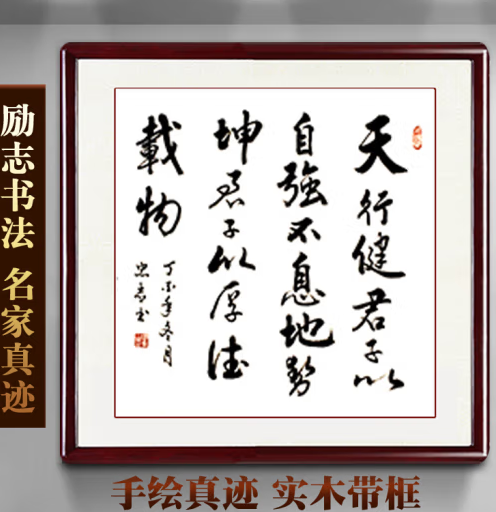 励志书法 名家真迹
天行健君子以
自強不息地勢
坤君子以厚德
載物
年冬月
手绘真迹 实木带框